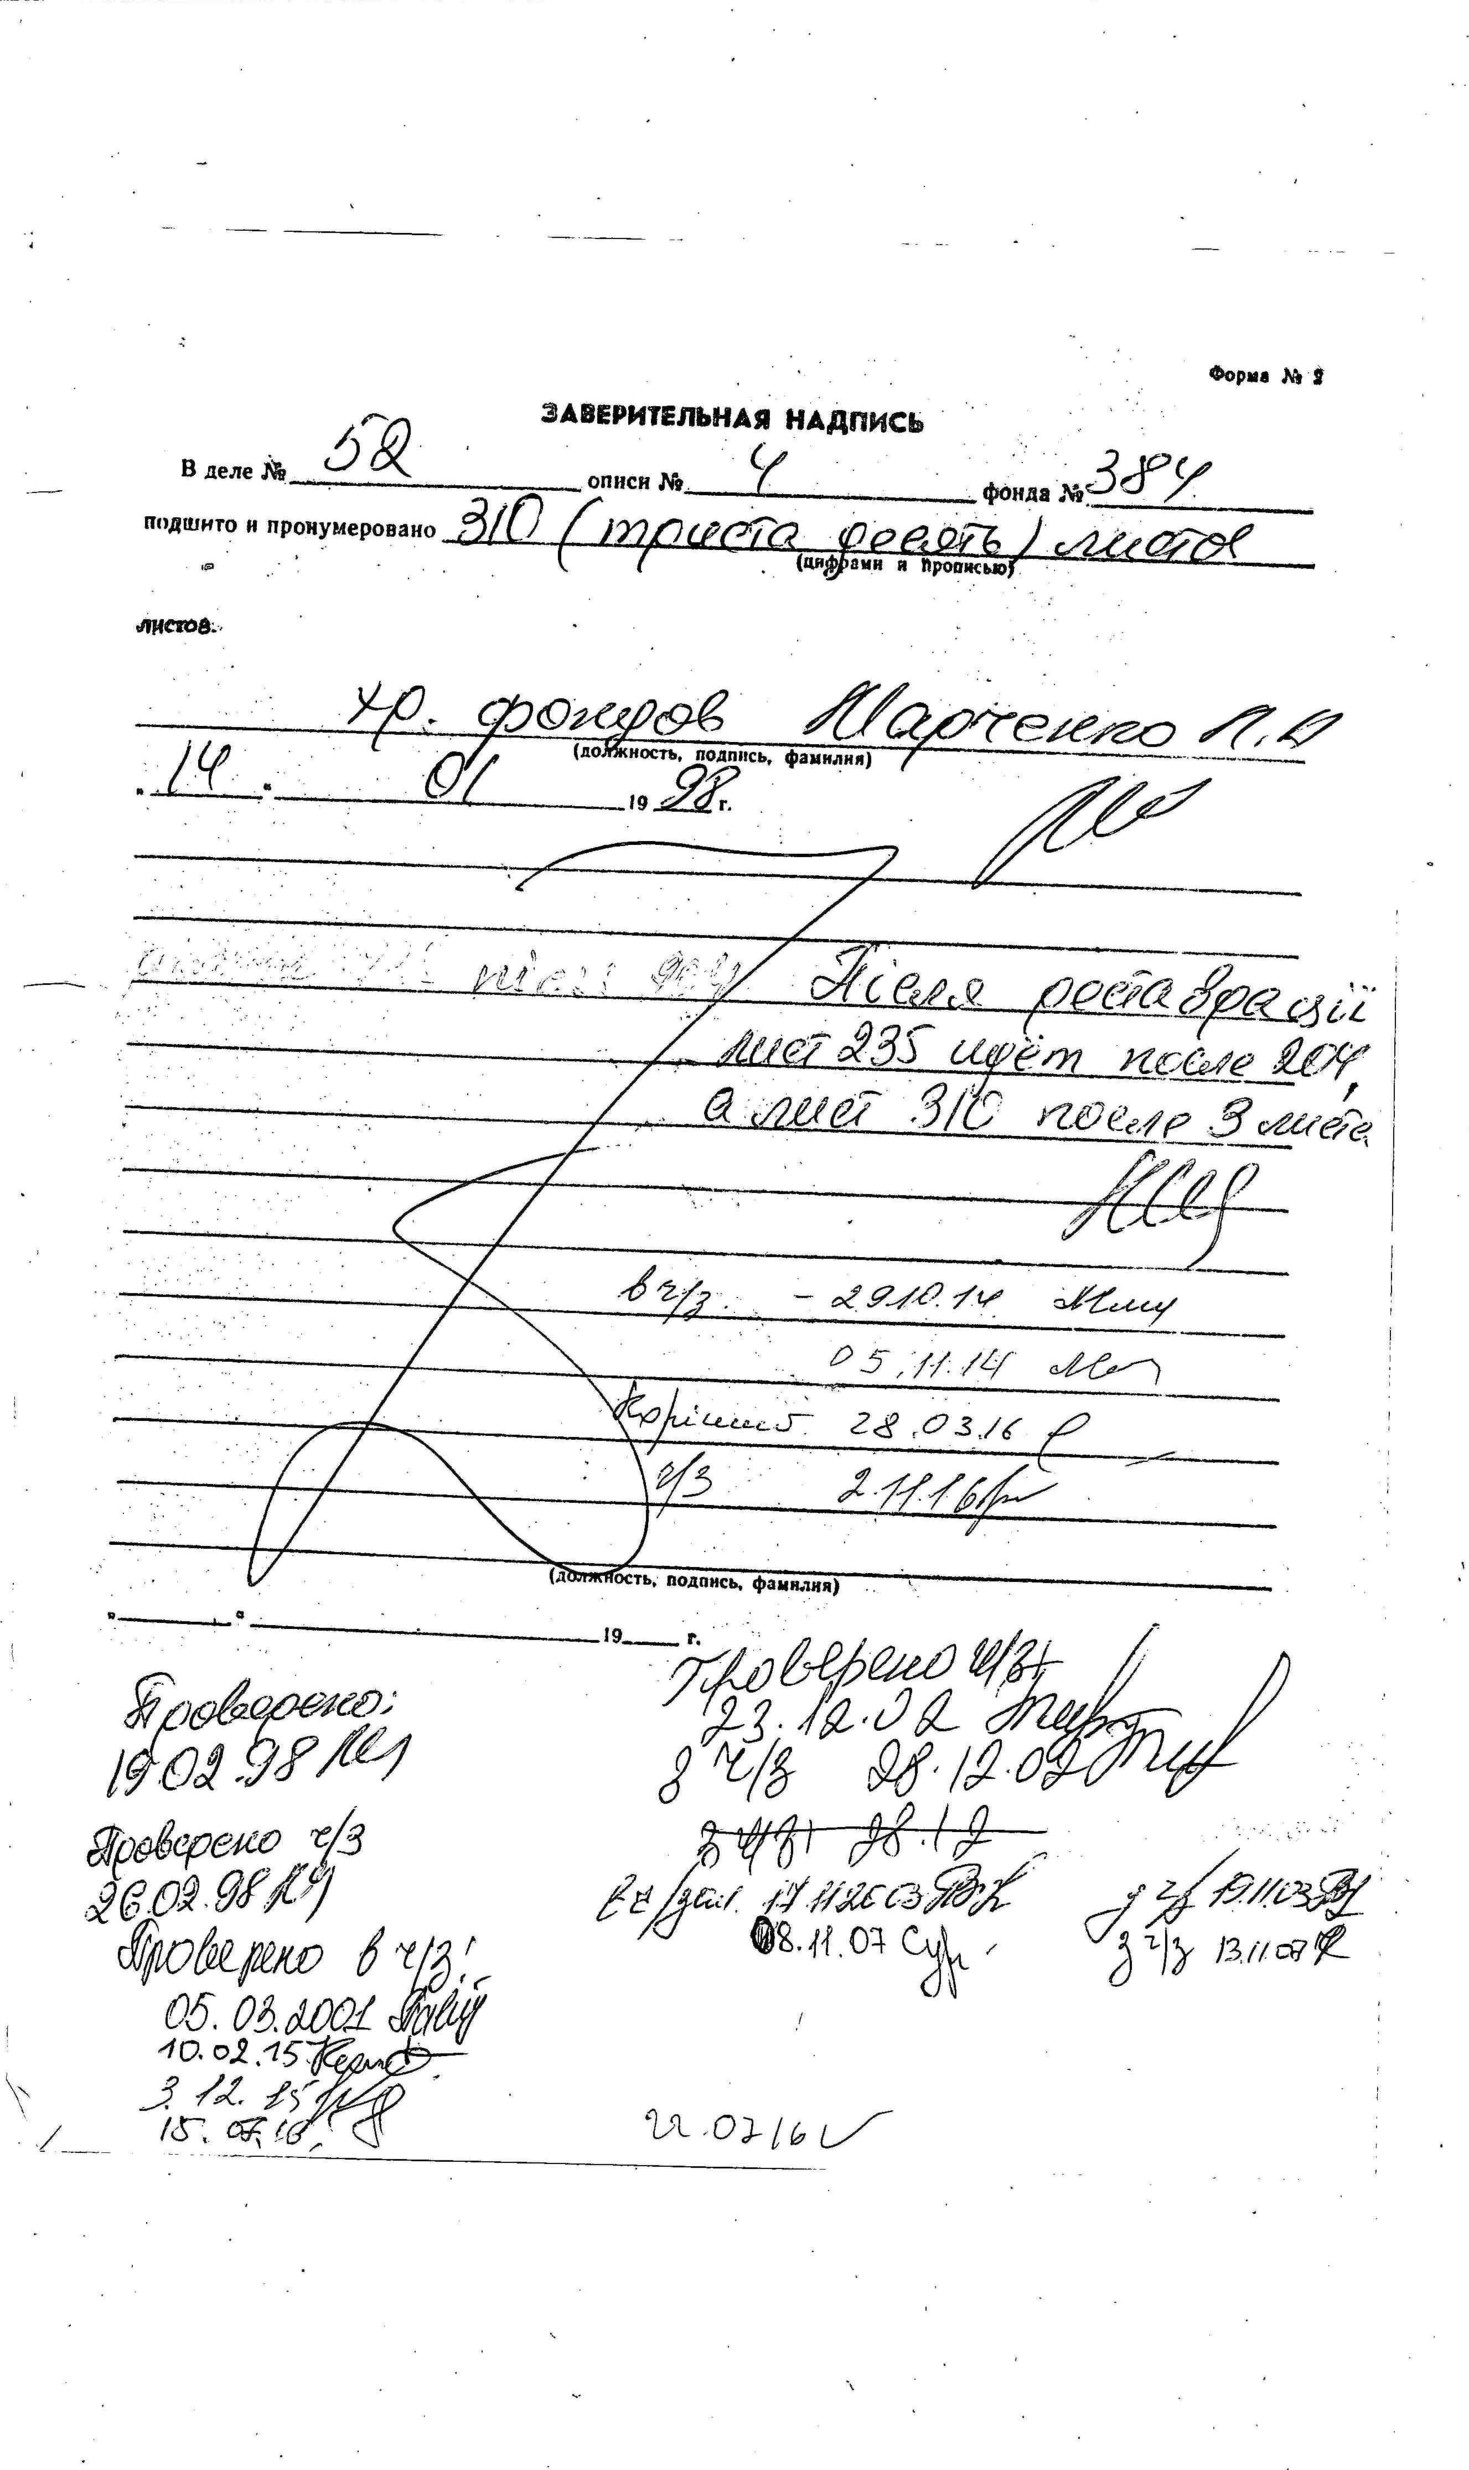 Форма № 2
ЗАВЕРИТЕЛЬНАЯ НАДПИСЬ
В деле № 52 описи № 4 фонда № 384
подшито и пронумеровано 310 (триста десять) листов
(цифрами и прописью)
листов.
хр. фондов Марченко Л.И
(должность, подпись, фамилия)
„14“ 01 1998 г.
Після реставрації
лист 235 идёт после 204,
а лист 310 после 3 листа
в ч/з. - 29.10.14
05.11.14
28.03.16
ч/з 2.11.16
(должность, подпись, фамилия)
„ “ 19 г.
Проверено ч/з
23.12.02
З ч/з 28.12.02
З ч/з 28.12
17.11.2003
ч/з 19.11.03
08.11.07
З ч/з 13.11.07
Проверено:
19.02.98
Проверено ч/з
26.02.98
Проверено в ч/з:
05.03.2001
10.02.15
3.12.15
15.07.16
22.07 16